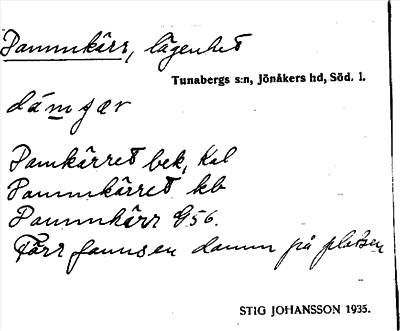 Dammkärr, lägenhet
Tunabergs s:n, Jönåkers hd, Söd. l.
dámɟær
Damkärret bek, Kal
Dammkärret kb
Dammkärr G56.
Förr fanns en damm på platsen
STIG JOHANSSON 1935.